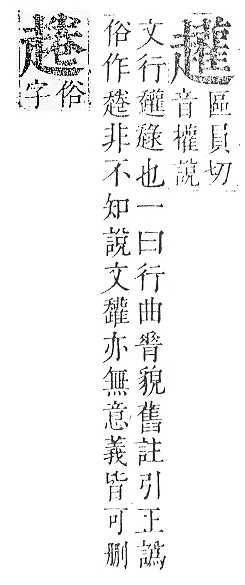 𧾯
區員切
音權說
文行𧾯趢也一曰行曲脊貌舊註引王譌
俗作非不知說文𧾯亦無意義皆可刪
俗
字